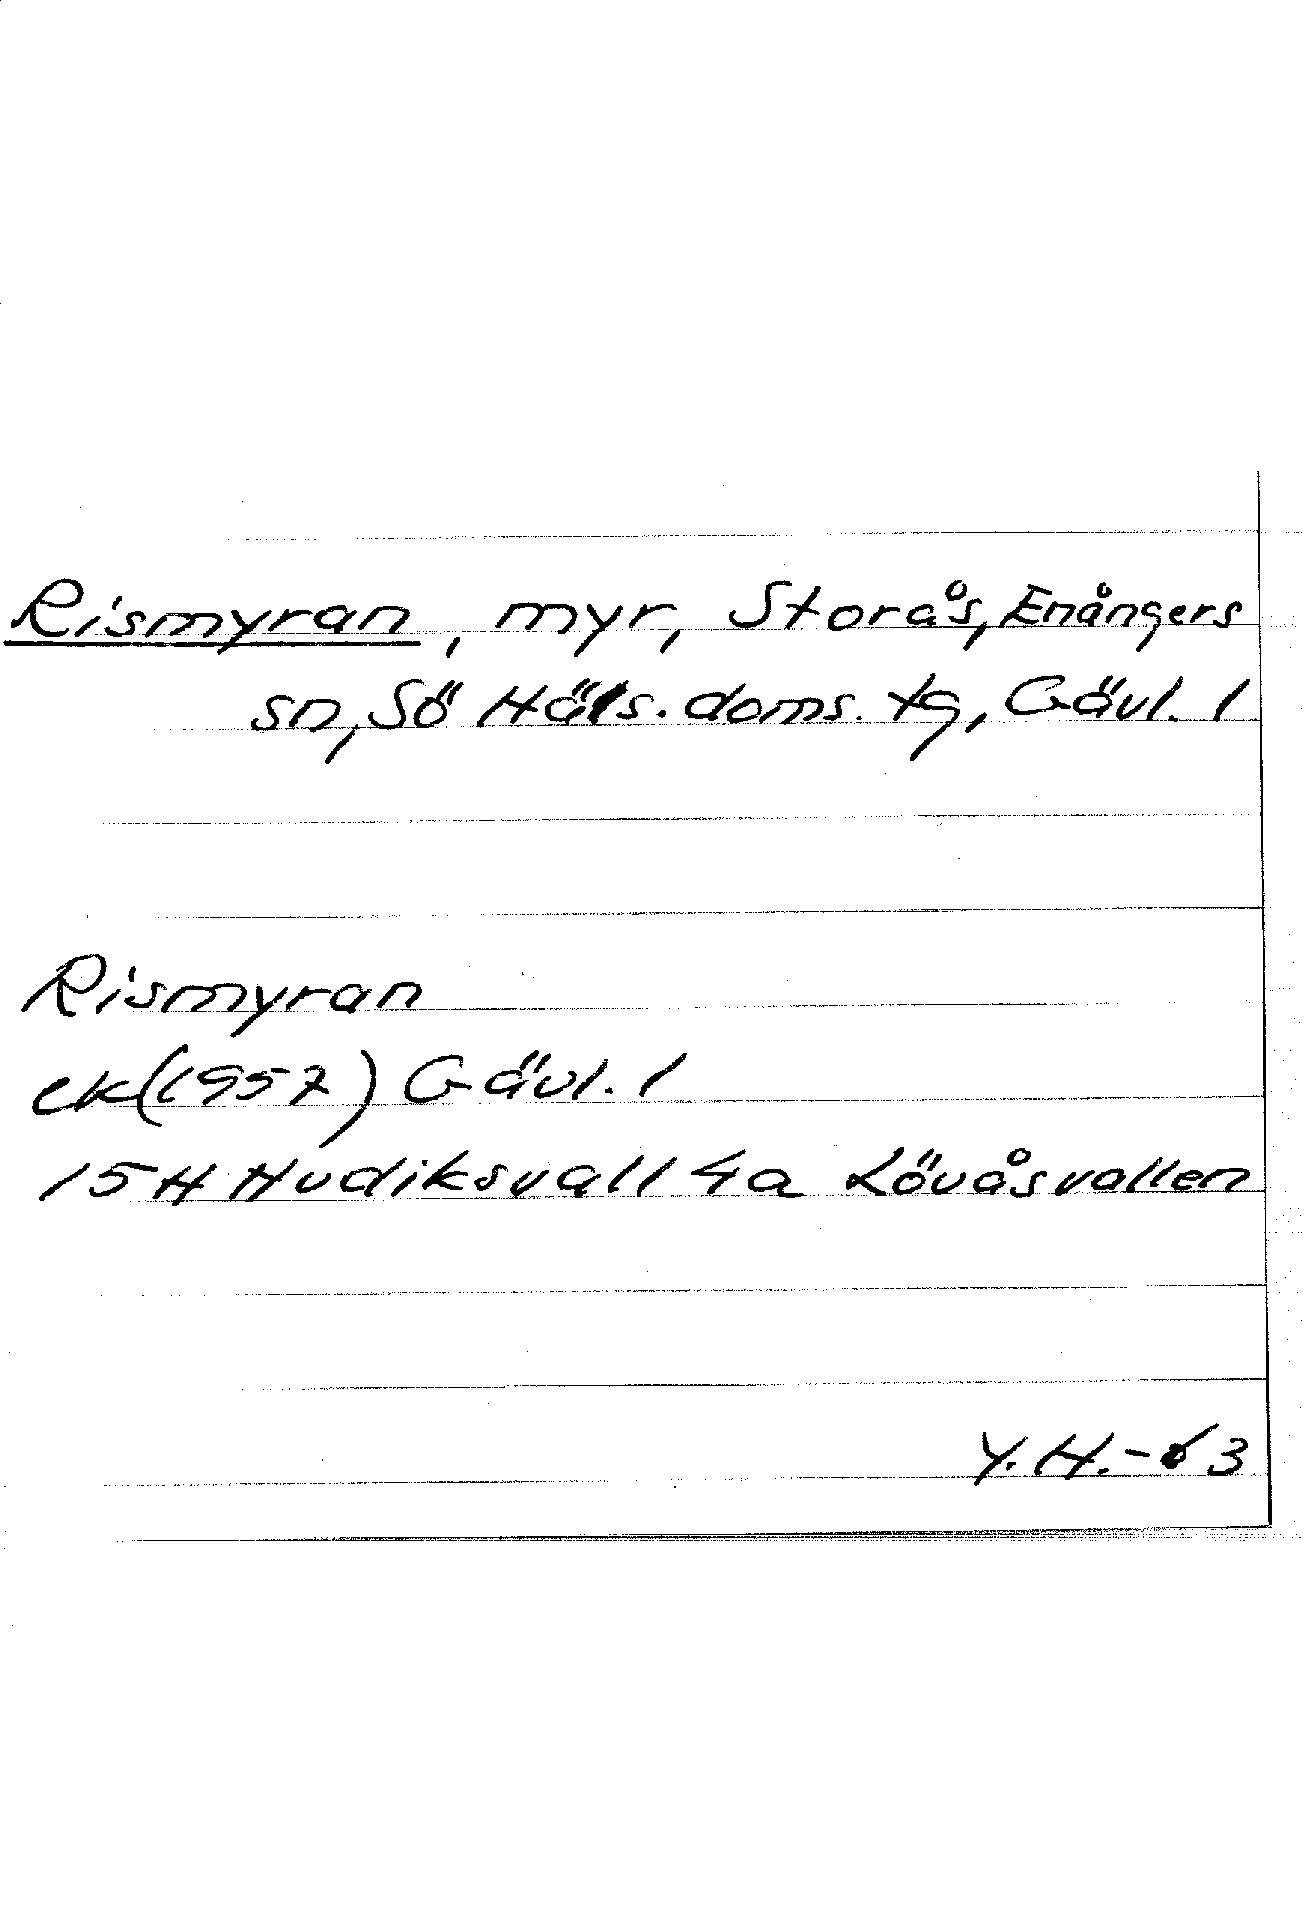 Rismyran, myr, Storås, Enångers
sn, Sö Häls. doms. tg, Gävl. l
Rismyran
ek (1957) Gävl. l
15H Hudiksvall 4a Lövåsvallen
Y.H.-63